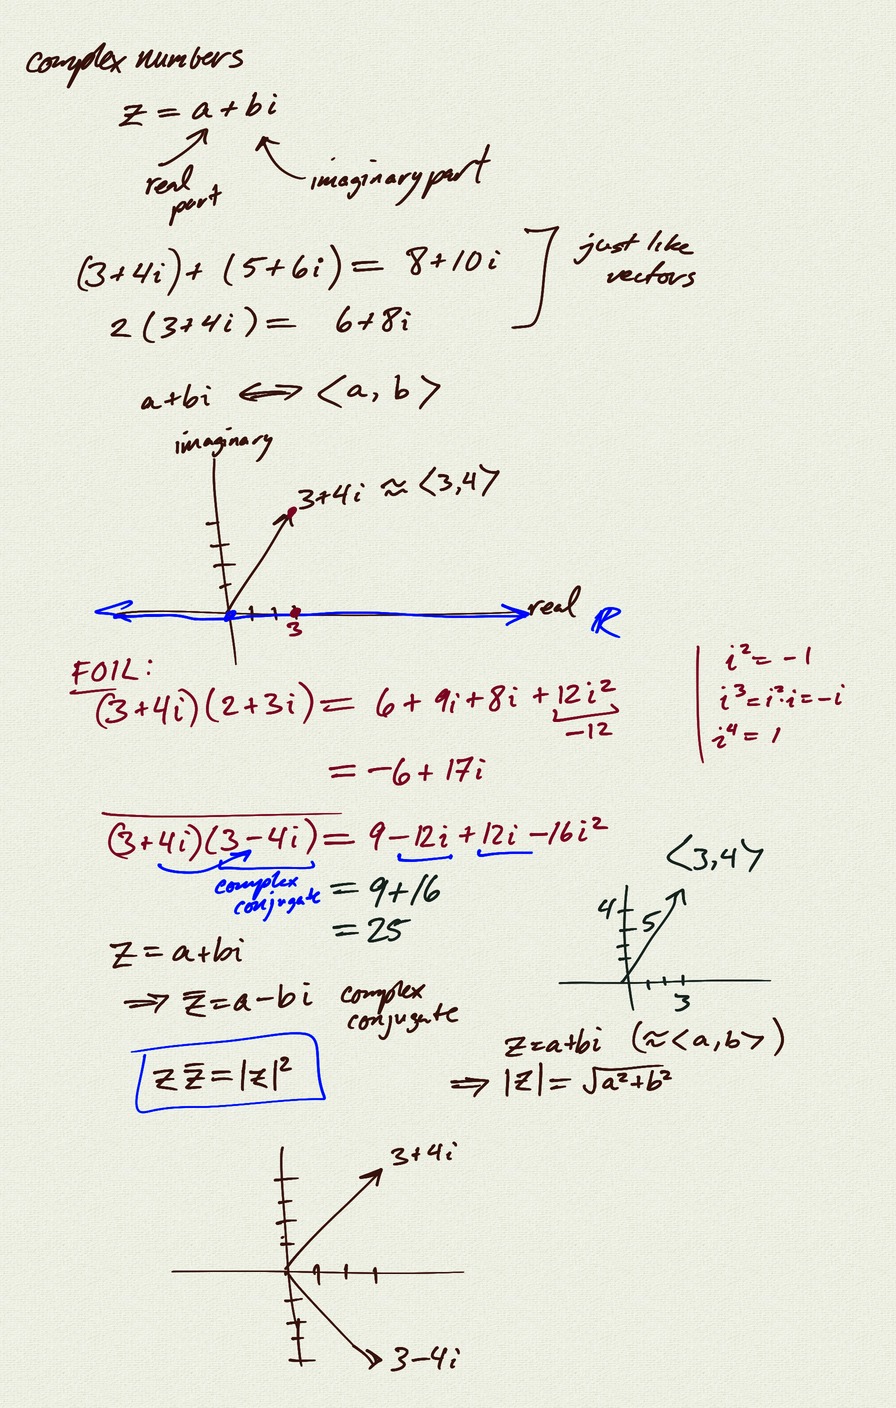 complex numbers
z = a + bi
real part
imaginary part
(3+4i) + (5+6i) = 8+10i
2(3+4i) = 6+8i
just like vectors
a+bi ⟷ <a, b>
imaginary
3+4i ≈ <3,4>
real ℝ
3
FOIL:
(3+4i)(2+3i) = 6 + 9i + 8i + 12i²
-12
= -6 + 17i
i² = -1
i³ = i²·i = -i
i⁴ = 1
(3+4i)(3-4i) = 9 - 12i + 12i - 16i²
complex conjugate
= 9+16
= 25
<3,4>
4
5
3
z = a+bi
⇒ z̄ = a-bi complex conjugate
z z̄ = |z|²
z = a+bi (≈<a, b>)
⇒ |z| = √(a²+b²)
3+4i
3-4i